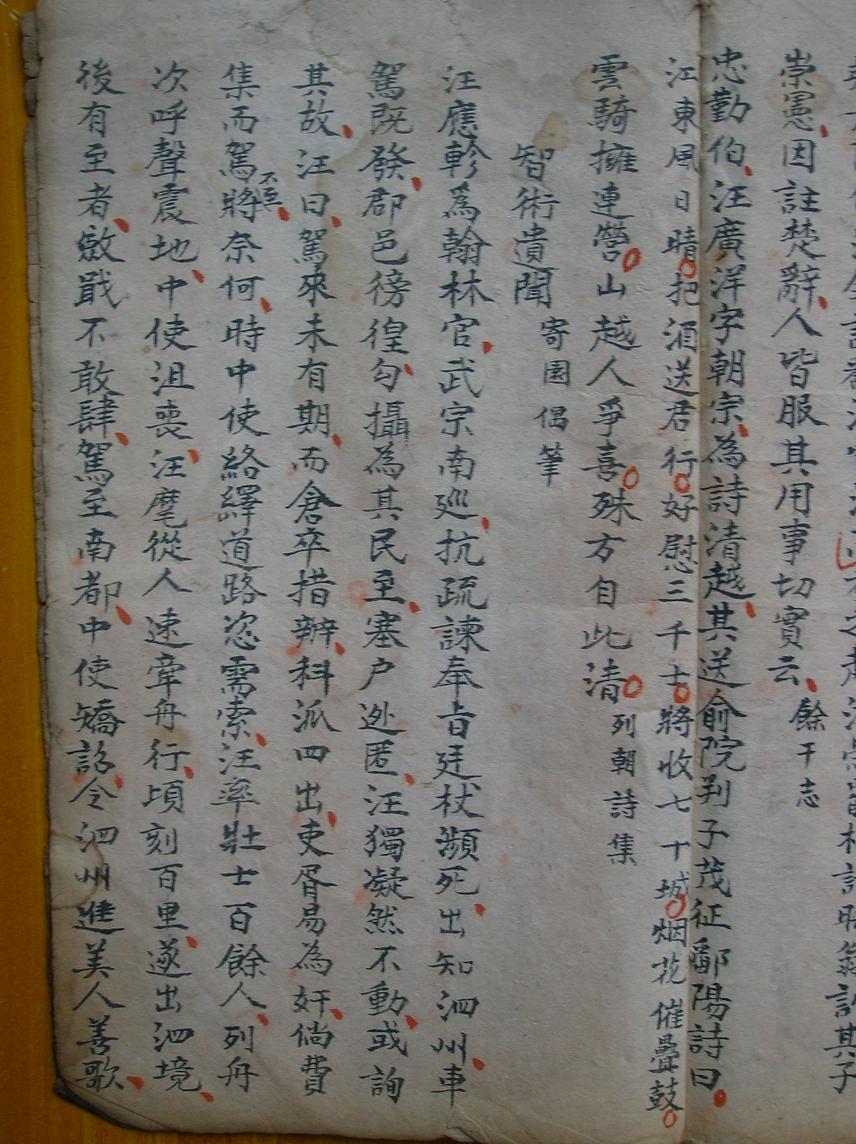 崇憲因註楚辭人皆服其用事切實云 餘干志
忠勤伯汪廣洋字朝宗為詩清越其送俞院判子茂征鄱陽詩曰
江東風日晴把酒送君行好慰三千士將收七十城烟花催疊鼓
雲騎擁連營山越人爭喜殊方自此清 列朝詩集
智術遺聞 寄園偶筆
汪應軫爲翰林官武宗南廵抗疏諫奉旨廷杖瀕死出知泗州車
駕既發郡邑徬徨勾攝為其民至塞户迯匿汪獨凝然不動或詢
其故汪曰駕來未有期而倉卒措辦科派四出吏胥易為奸倘費
集而駕將不至奈何時中使絡繹道路恣需索汪率壯士百餘人列舟
次呼聲震地中使沮喪汪麾從人速牽舟行頃刻百里遂出泗境
後有至者斂戢不敢肆駕至南都中使矯詔令泗州進美人善歌